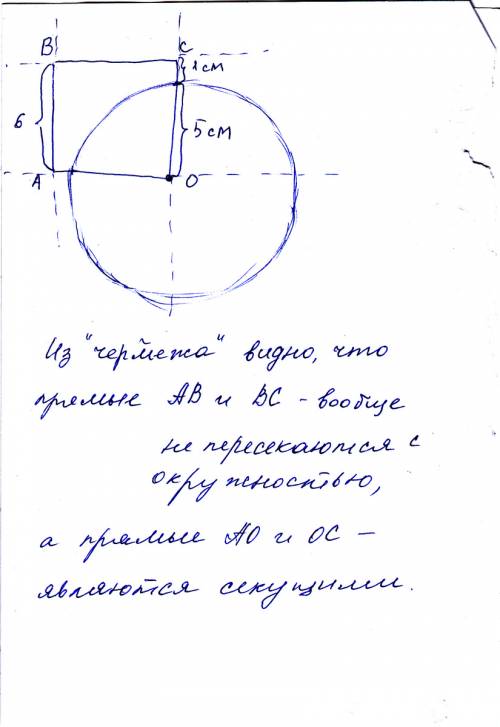 B C
1 см
6
5 см
A O
Из "чертежа" видно, что
прямые AB и BC - вообще
не пересекаются с
окружностью,
а прямые AO и OC —
являются секущими.